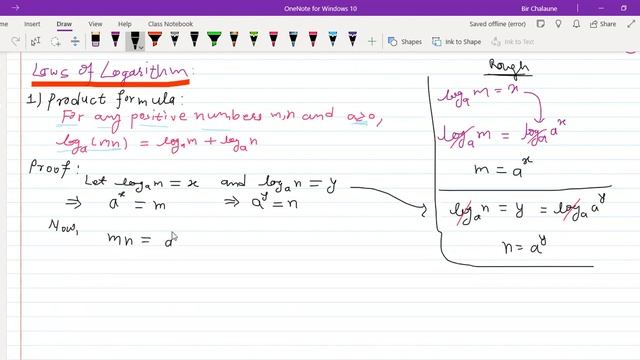 OneNote for Windows 10
Bir Chalaune
Home Insert Draw View Help Class Notebook Saved offline (error) Share
Shapes Ink to Shape Ink to Text
Laws of Logarithm:
1) Product formula:
For any positive numbers m,n and a≥0,
logₐ(mn) = logₐm + logₐn
Proof:
Let logₐm = x and logₐn = y
⇒ aˣ = m ⇒ aʸ = n
Now,
mn = a
Rough
logₐm = x
logₐm = logₐaˣ
m = aˣ
logₐn = y = logₐaʸ
n = aʸ